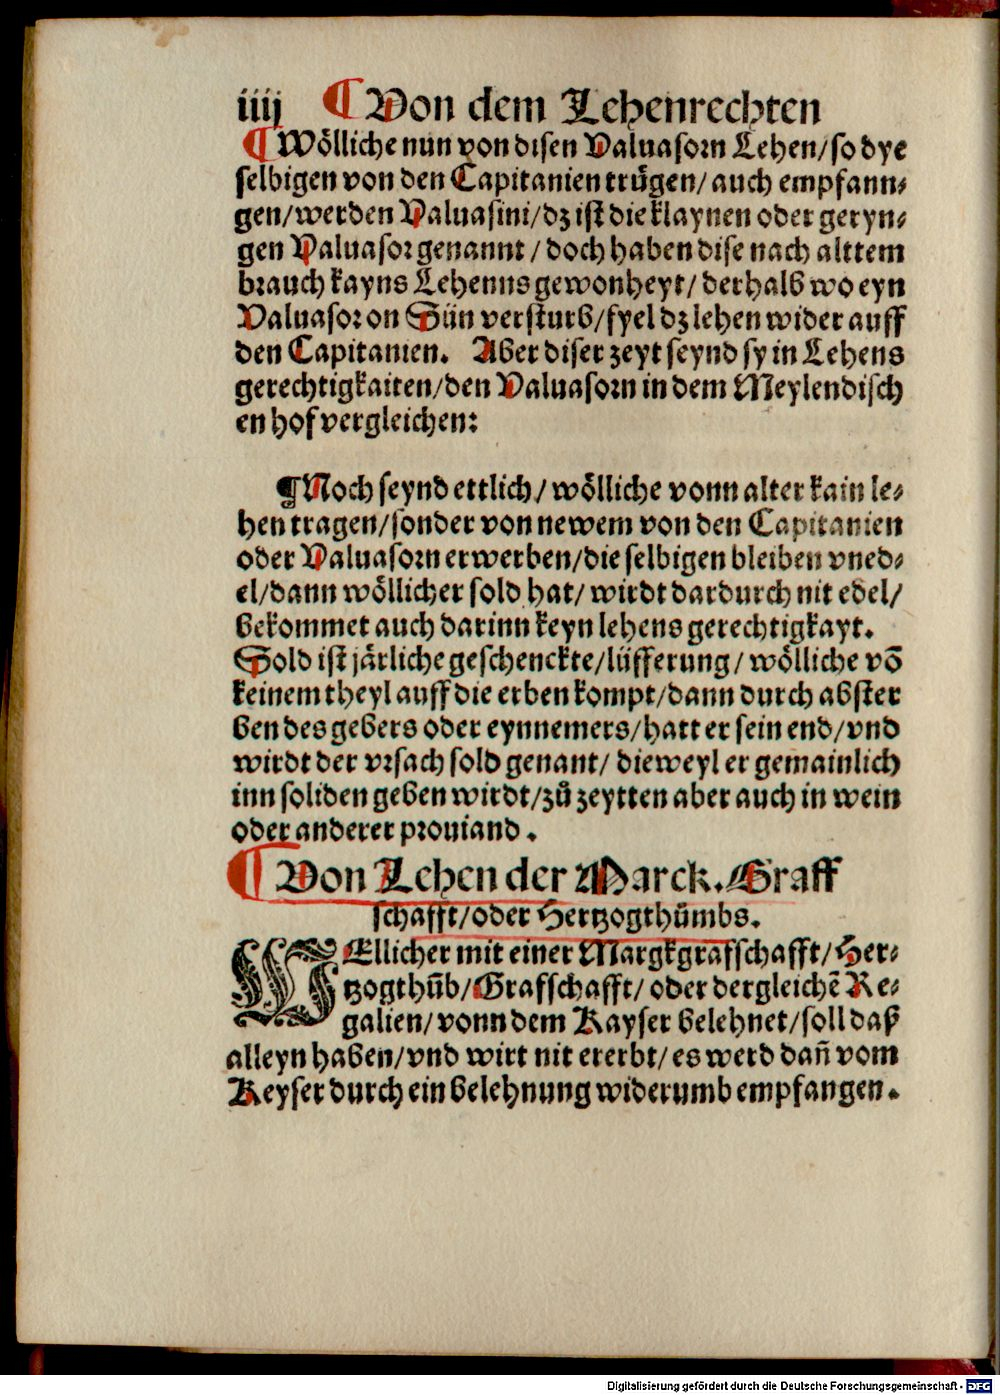 iiij ¶ Von dem Lehenrechten
¶ Wölliche nun von disen Valuasorn Lehen/so dye
selbigen von den Capitanien trůgen/ auch empfann⸗
gen/werden Valuasini/dz ist die klaynen oder geryn⸗
gen Valuasor genannt / doch haben dise nach alttem
brauch kayns Lehenns gewonheyt/ derhalb wo eyn
Valuasor on Sün versturb/fyel dz lehen wider auff
den Capitanien. Aber diser zeyt seynd sy in Lehens
gerechtigkaiten/den Valuasorn in dem Meylendisch
en hof vergleichen:
¶ Noch seynd ettlich/ wölliche vonn alter kain le⸗
hen tragen/sonder von newem von den Capitanien
oder Valuasorn erwerben/die selbigen bleiben vned⸗
el/dann wöllicher sold hat/ wirdt dardurch nit edel/
bekommet auch darinn keyn lehens gerechtigkayt.
Sold ist järliche geschenckte/lüfferung/ wölliche võ
keinem theyl auff die erben kompt/dann durch abster
ben des gebers oder eynnemers/hatt er sein end/vnd
wirdt der vrsach sold genant/ dieweyl er gemainlich
inn soliden geben wirdt/zů zeytten aber auch in wein
oder anderer prouiand.
¶ Von Lehen der Marck. Graff
schafft/oder Hertzogthůmbs.
WEllicher mit einer Margkgrafschafft/ Her⸗
tzogthůb/Grafschafft/ oder dergleichẽ Re⸗
galien/ vonn dem Kayser belehnet/soll daß
alleyn haben/vnd wirt nit ererbt/ es werd dañ vom
Keyser durch ein belehnung widerumb empfangen.
Digitalisierung gefördert durch die Deutsche Forschungsgemeinschaft - DFG